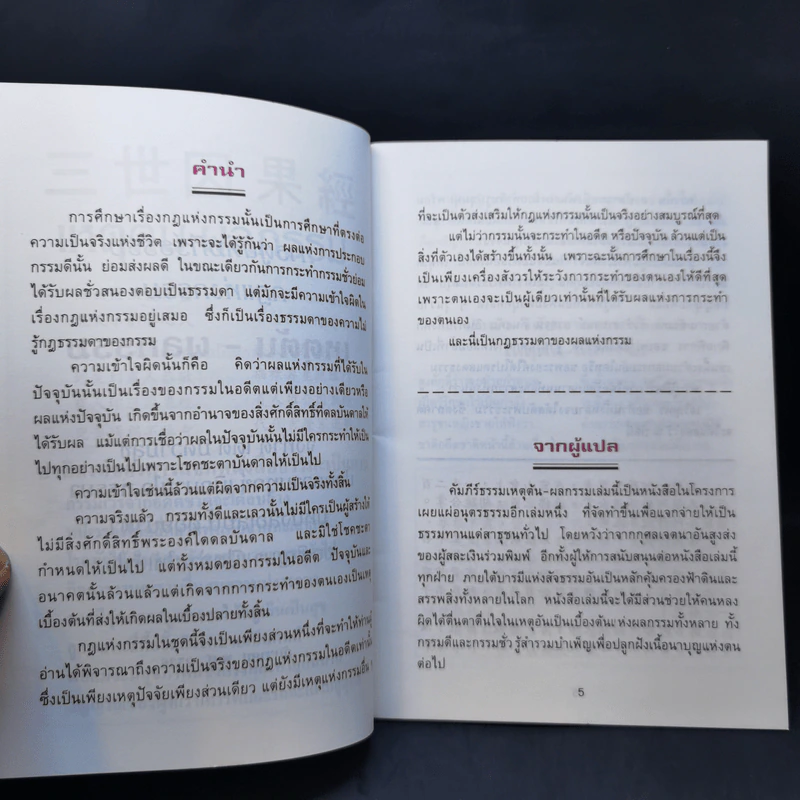 คำนำ
การศึกษาเรื่องกฎแห่งกรรมนั้นเป็นการศึกษาที่ตรงต่อ
ความเป็นจริงแห่งชีวิต เพราะจะได้รู้กันว่า ผลแห่งการประกอบ
กรรมดีนั้น ย่อมส่งผลดี ในขณะเดียวกันการกระทำกรรมชั่วย่อม
ได้รับผลชั่วสนองตอบเป็นธรรมดา แต่มักจะมีความเข้าใจผิดใน
เรื่องกฎแห่งกรรมอยู่เสมอ ซึ่งก็เป็นเรื่องธรรมดาของความไม่
รู้กฎธรรมดาของกรรม
ความเข้าใจผิดนั้นก็คือ คิดว่าผลแห่งกรรมที่ได้รับใน
ปัจจุบันนั้นเป็นเรื่องของกรรมในอดีตแต่เพียงอย่างเดียวหรือ
ผลแห่งปัจจุบัน เกิดขึ้นจากอำนาจของสิ่งศักดิ์สิทธิ์ที่ดลบันดาลให้
ได้รับผล แม้แต่การเชื่อว่าผลในปัจจุบันนั้นไม่มีใครกระทำให้เป็น
ไปทุกอย่างเป็นไปเพราะโชคชะตาบันดาลให้เป็นไป
ความเข้าใจเช่นนี้ล้วนแต่ผิดจากความเป็นจริงทั้งสิ้น
ความจริงแล้ว กรรมทั้งดีและเลวนั้นไม่มีใครเป็นผู้สร้างให้
ไม่มีสิ่งศักดิ์สิทธิ์พระองค์ใดดลบันดาล และมิใช่โชคชะตา
กำหนดให้เป็นไป แต่ทั้งหมดของกรรมในอดีต ปัจจุบันและ
อนาคตนั้นล้วนแล้วแต่เกิดจากการกระทำของตนเองเป็นเหตุ
เบื้องต้นที่ส่งให้เกิดผลในเบื้องปลายทั้งสิ้น
กฎแห่งกรรมในชุดนี้จึงเป็นเพียงส่วนหนึ่งที่จะทำให้ท่านผู้
อ่านได้พิจารณาถึงความเป็นจริงของกฎแห่งกรรมในอดีตเท่านั้น
ซึ่งเป็นเพียงเหตุปัจจัยเพียงส่วนเดียว แต่ยังมีเหตุแห่งกรรมอื่น
ที่จะเป็นตัวส่งเสริมให้กฎแห่งกรรมนั้นเป็นจริงอย่างสมบูรณ์ที่สุด
แต่ไม่ว่ากรรมนั้นจะกระทำในอดีต หรือปัจจุบัน ล้วนแต่เป็น
สิ่งที่ตัวเองได้สร้างขึ้นทั้งนั้น เพราะฉะนั้นการศึกษาในเรื่องนี้จึง
เป็นเพียงเครื่องสังวรให้ระวังการกระทำของตนเองให้ดีที่สุด
เพราะตนเองจะเป็นผู้เดียวเท่านั้นที่ได้รับผลแห่งการกระทำ
ของตนเอง
และนี่เป็นกฎธรรมดาของผลแห่งกรรม
จากผู้แปล
คัมภีร์ธรรมเหตุต้น-ผลกรรมเล่มนี้เป็นหนังสือในโครงการ
เผยแผ่อนุตรธรรมอีกเล่มหนึ่ง ที่จัดทำขึ้นเพื่อแจกจ่ายให้เป็น
ธรรมทานแด่สาธุชนทั่วไป โดยหวังว่าจากกุศลเจตนาอันสูงส่ง
ของผู้สละเงินร่วมพิมพ์ อีกทั้งผู้ให้การสนับสนุนต่อหนังสือเล่มนี้
ทุกฝ่าย ภายใต้บารมีแห่งสัจธรรมอันเป็นหลักคุ้มครองฟ้าดินและ
สรรพสิ่งทั้งหลายในโลก หนังสือเล่มนี้จะได้มีส่วนช่วยให้คนหลง
ผิดได้ตื่นตาตื่นใจในเหตุอันเป็นเบื้องต้นแห่งผลกรรมทั้งหลาย ทั้ง
กรรมดีและกรรมชั่ว รู้สำรวมบำเพ็ญเพื่อปลูกฝังเนื้อนาบุญแห่งตน
ต่อไป
5